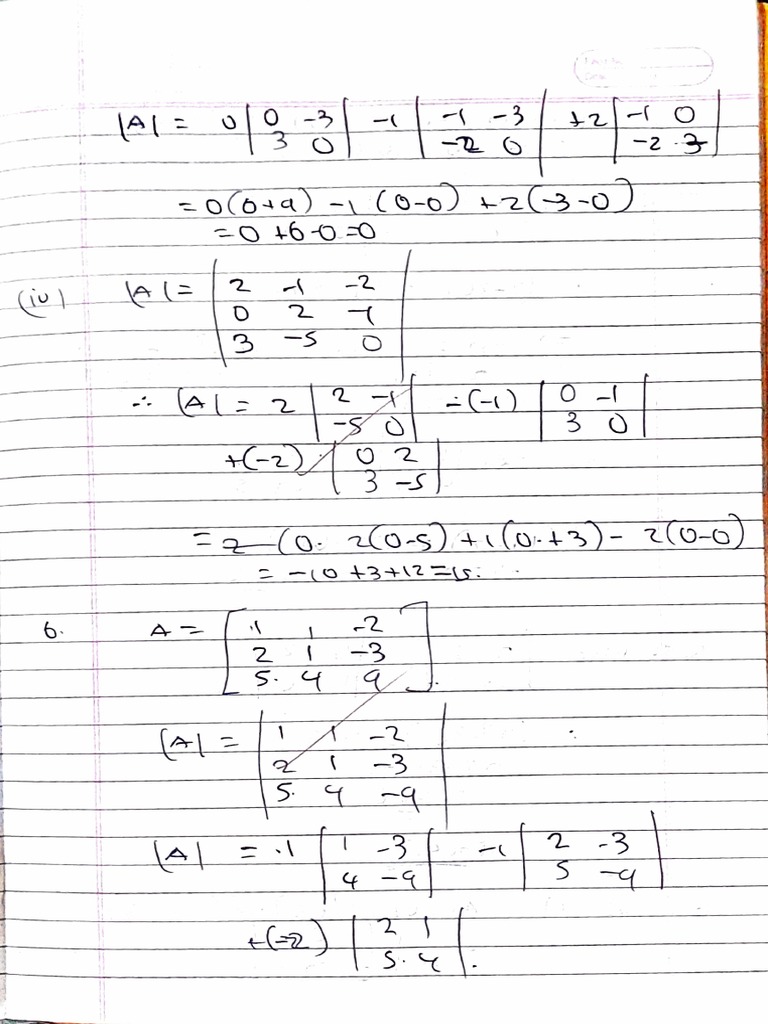 |A| = 0 | 0 -3 | -1 | -1 -3 | +2 | -1 0 |
3 0 -2 0 -2 3
= 0(0+9) -1(0-0) +2(-3-0)
= 0+6-0=0
(iv) |A| = | 2 -1 -2 |
0 2 -1
3 -5 0
∴ |A| = 2 | 2 -1 | -(-1) | 0 -1 |
-5 0 3 0
+(-2) | 0 2 |
3 -5
= 2 (0. 2(0-5) +1(0+3) - 2(0-0)
= -10+3+12=15.
6. A = [ 1 1 -2 ]
2 1 -3
5. 4 9
|A| = | 1 1 -2 |
2 1 -3
5. 4 -9
|A| = .1 | 1 -3 | -1 | 2 -3 |
4 -9 5 -9
+(-2) | 2 1 |
5. 4